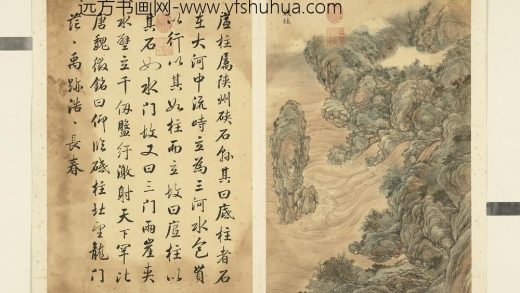 远方书画网-www.yfshuhua.com
底柱屬陝州硤石縣其曰底柱者石
在大河中流峙立為三河水包貫
以行以其如柱而立故曰底柱以
其石如水門故又曰三門兩崖夾
水壁立千仞盤紆激射天下罕比
唐魏徵銘曰仰臨砥柱北望龍門
茫〻禹跡浩〻長春
柱